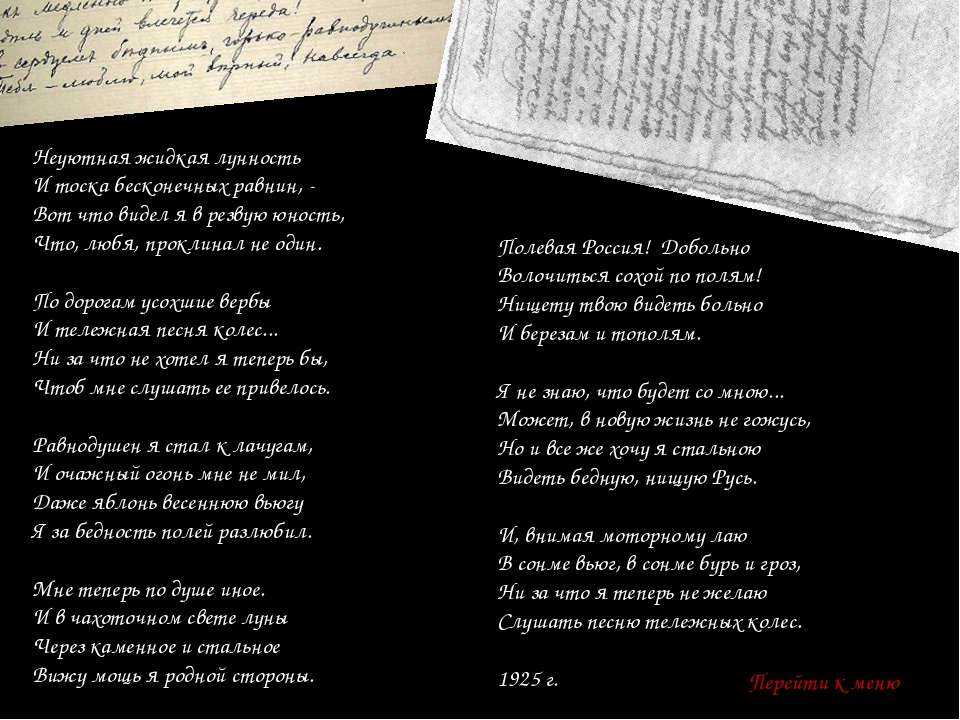 дней влечется череда!
сердцем бедным, горько-равнодушным
Тебя – люблю, мой верный, навсегда.
Неуютная жидкая лунность
И тоска бесконечных равнин, -
Вот что видел я в резвую юность,
Что, любя, проклинал не один.
По дорогам усохшие вербы
И тележная песня колес...
Ни за что не хотел я теперь бы,
Чтоб мне слушать ее привелось.
Равнодушен я стал к лачугам,
И очажный огонь мне не мил,
Даже яблонь весеннюю вьюгу
Я за бедность полей разлюбил.
Мне теперь по душе иное.
И в чахоточном свете луны
Через каменное и стальное
Вижу мощь я родной стороны.
Полевая Россия! Добольно
Волочиться сохой по полям!
Нищету твою видеть больно
И березам и тополям.
Я не знаю, что будет со мною...
Может, в новую жизнь не гожусь,
Но и все же хочу я стальною
Видеть бедную, нищую Русь.
И, внимая моторному лаю
В сонме вьюг, в сонме бурь и гроз,
Ни за что я теперь не желаю
Слушать песню тележных колес.
1925 г.
Перейти к меню